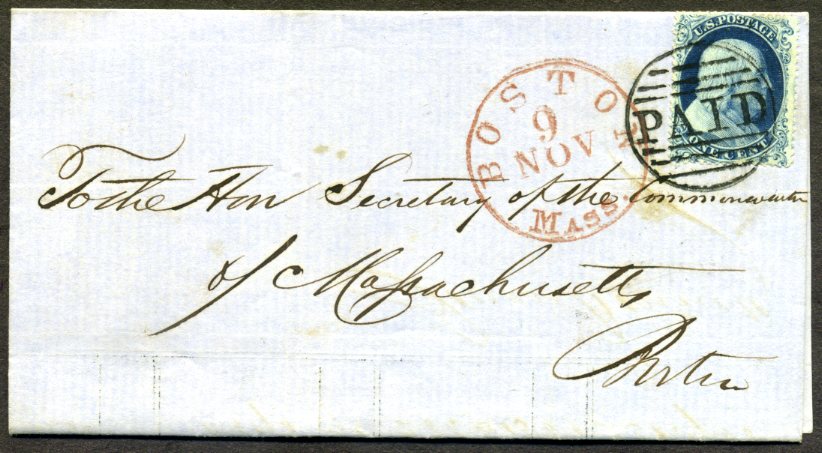 U.S. POSTAGE
PAID
ONE CENT
BOSTON
9
NOV
MASS.
To the Hon Secretary of the Commonwealth
of Massachusetts
Boston